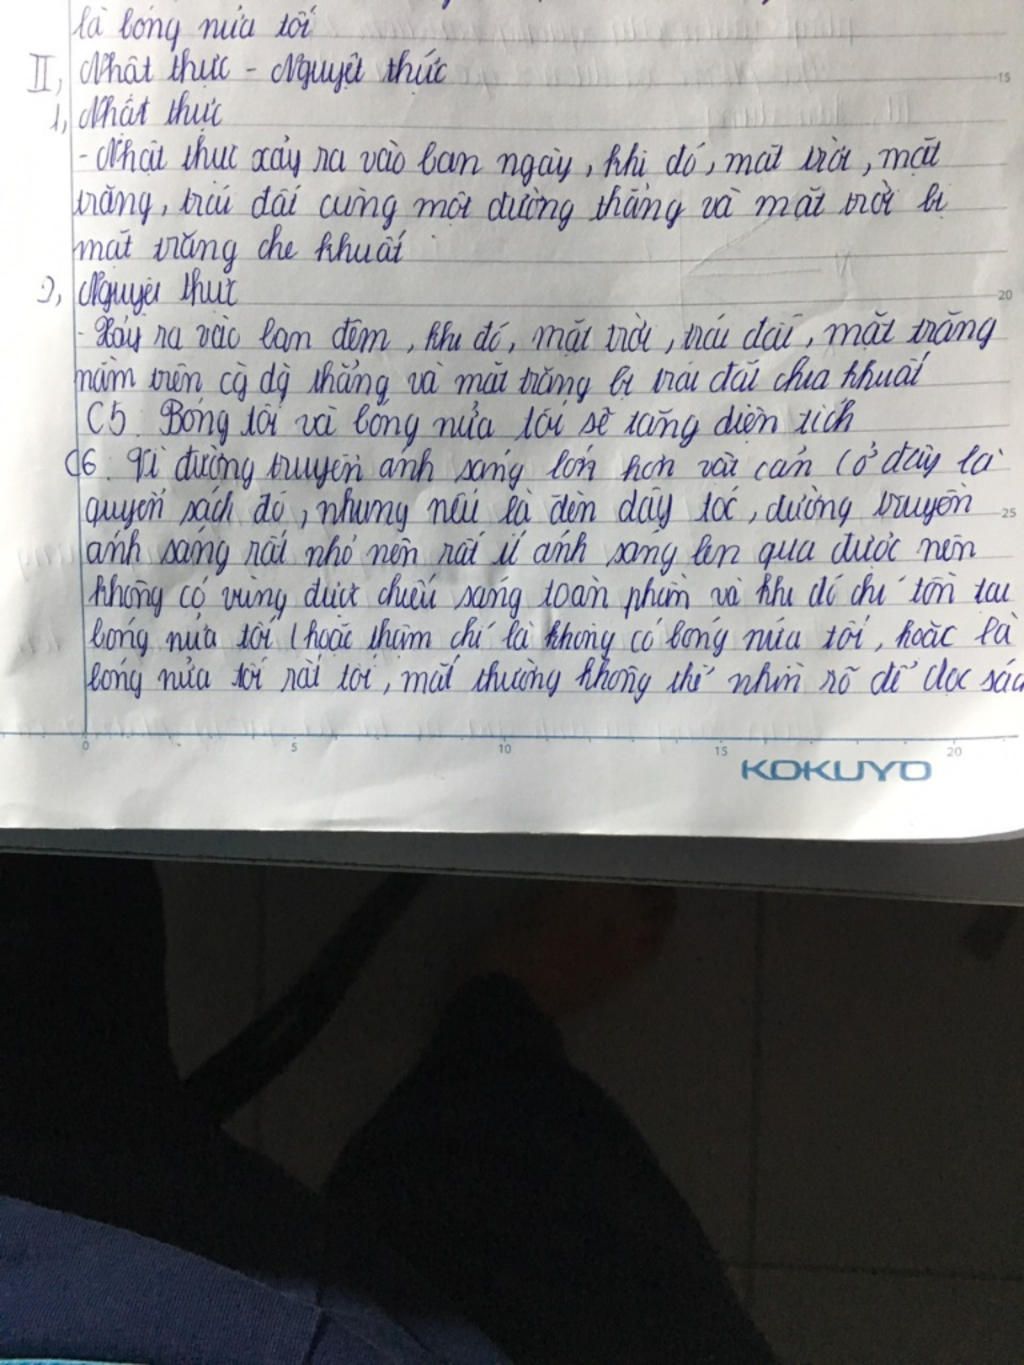 là bóng nửa tối
II, Nhật thực - Nguyệt thức
15
1, Nhật thực
- Nhật thực xảy ra vào ban ngày, khi đó, mặt trời, mặt
trăng, trái đất cùng một đường thẳng và mặt trời bị
mặt trăng che khuất
2, Nguyệt thực
20
- Xảy ra vào ban đêm, khi đó, mặt trời, trái đất, mặt trăng
nằm trên cg dg thẳng và mặt trăng bị trái đất chea khuất
C5. Bóng tối và bóng nửa tối sẽ tăng diện tích
C6. Vì đường truyền ánh sáng lớn hơn vật cản (ở đây là
quyển sách đó, nhưng nếu là đèn dây tóc, đường truyền
25
ánh sáng rất nhỏ nên rất ít ánh sáng len qua được nên
không có vùng được chiếu sáng toàn phần và khi đó chỉ tồn tại
bóng nửa tối (hoặc thậm chí là không có bóng nửa tối, hoặc là
bóng nửa tối rất tối, mắt thường không thể nhìn rõ để đọc sác
0 5 10 15 20
KOKUYO